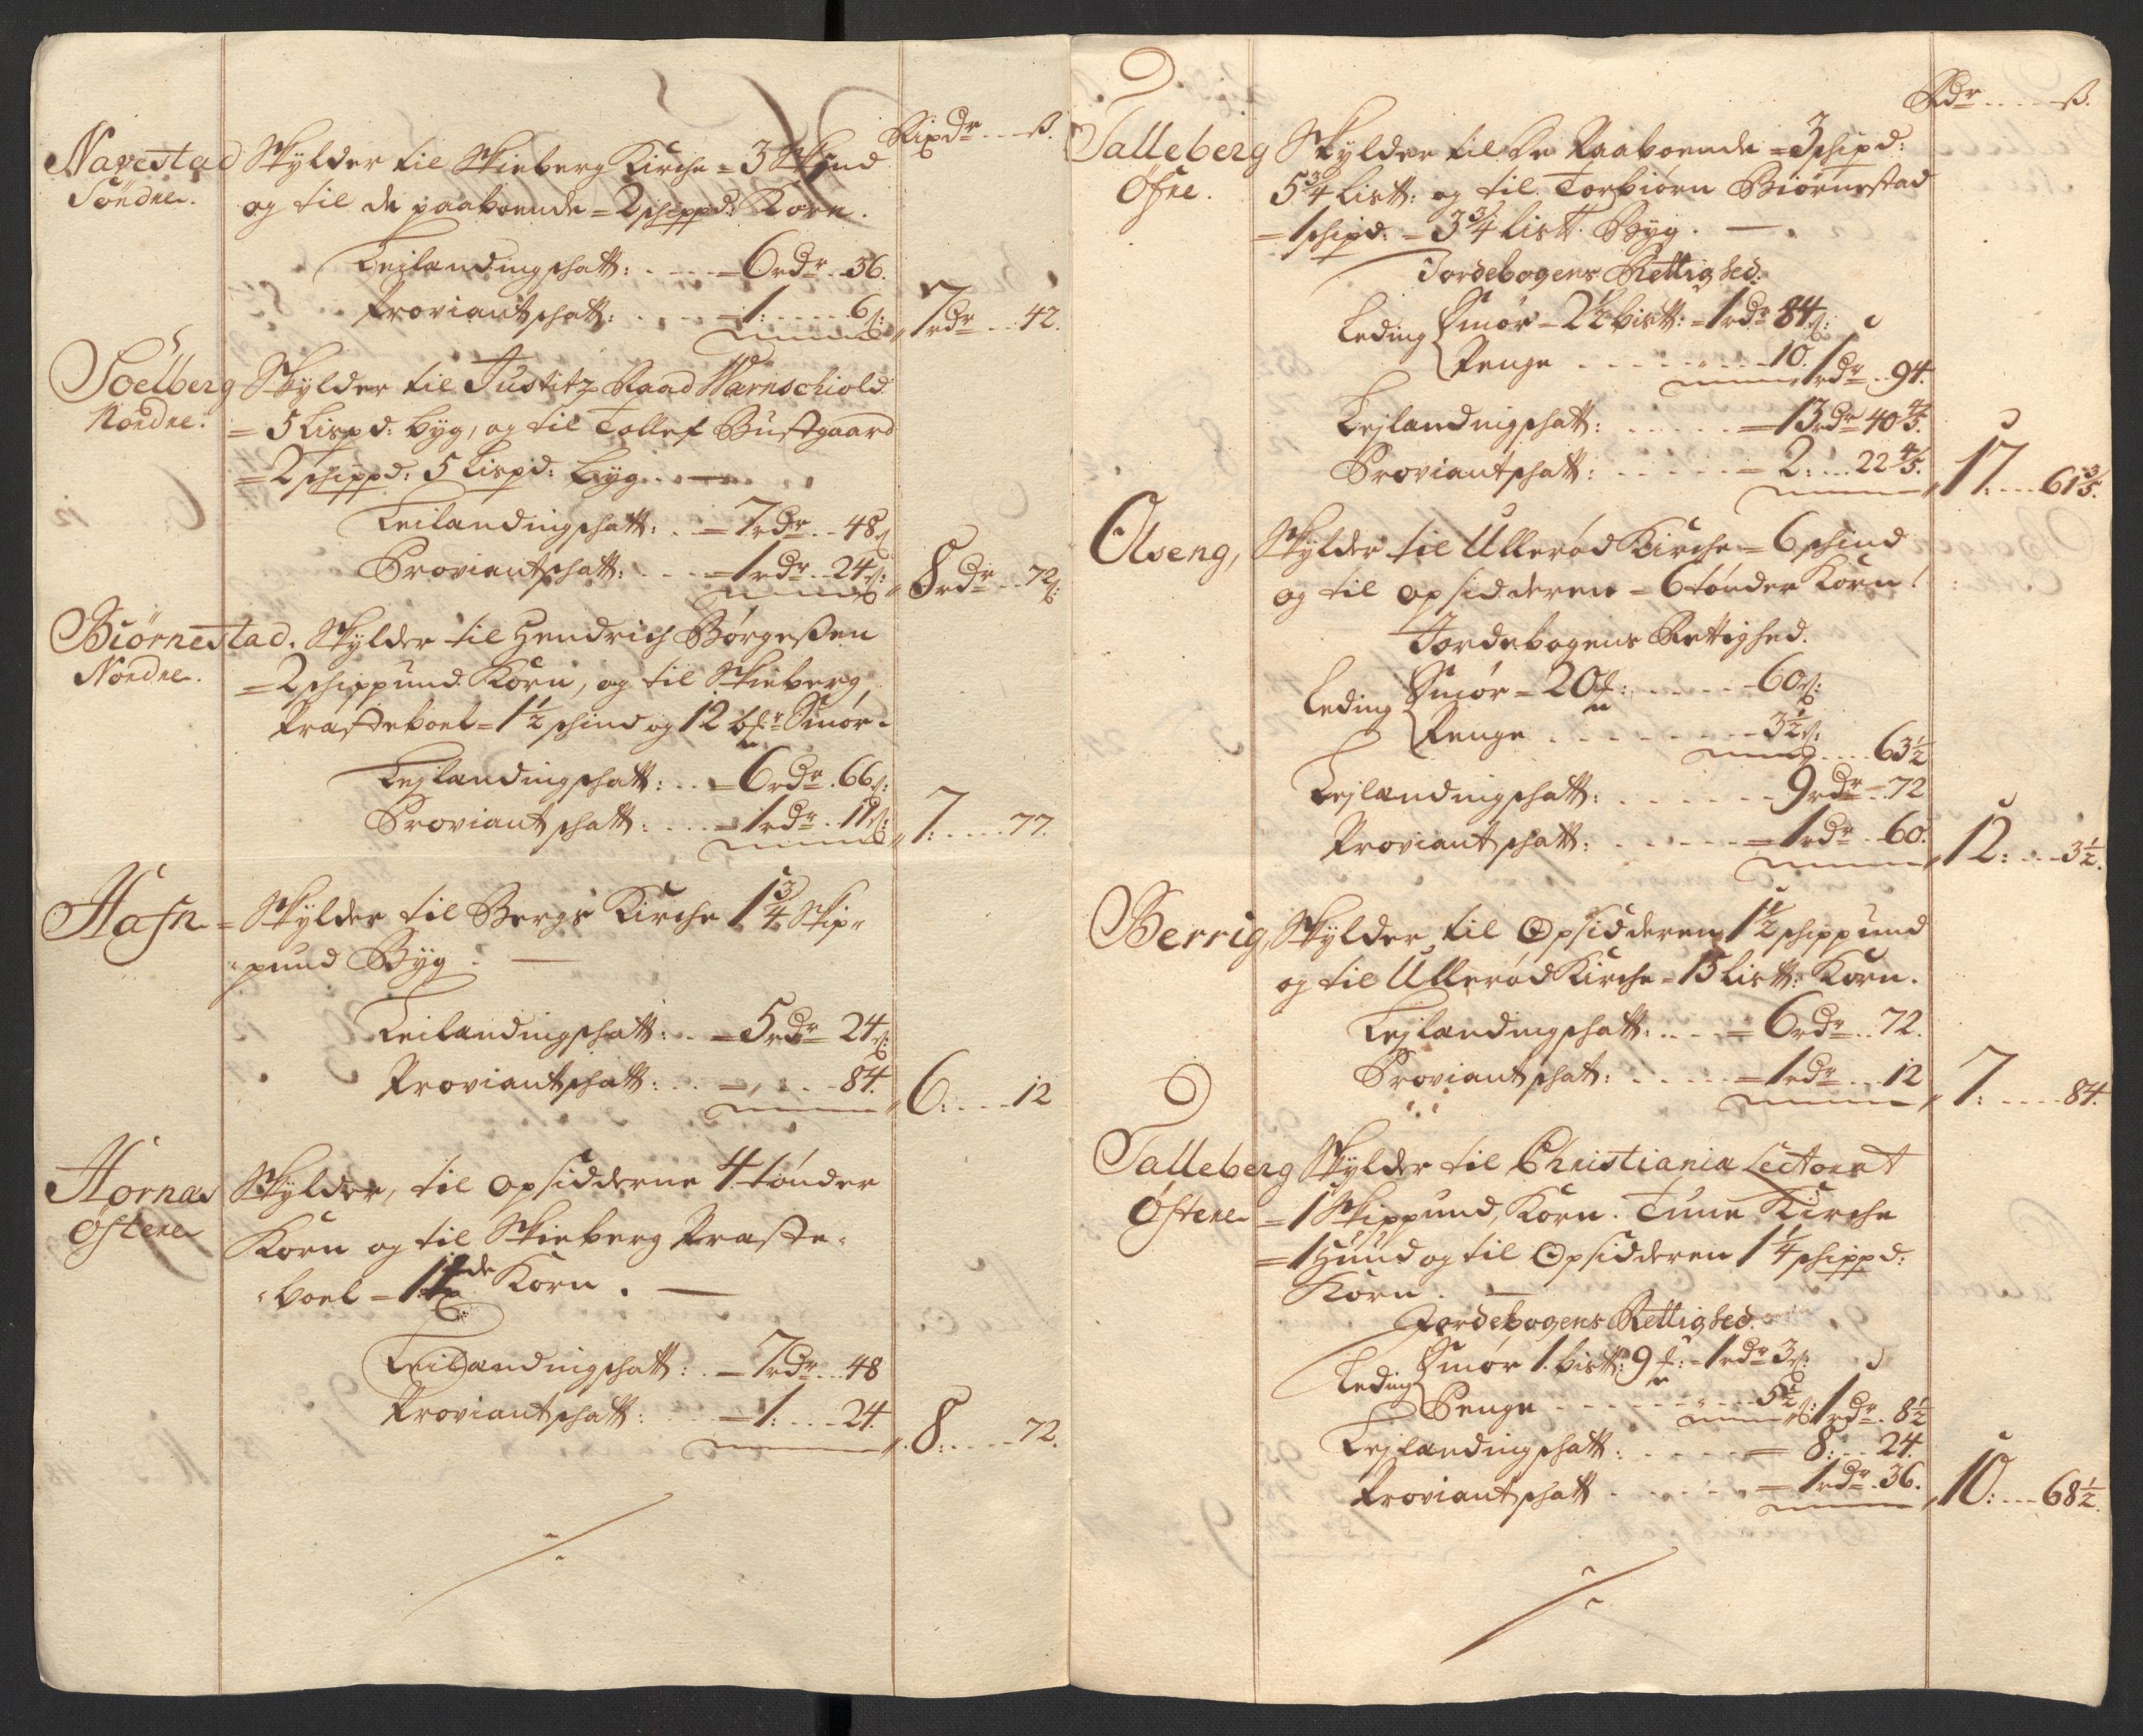 Rixdr ... ß.
Navestad Skylder til Skieberg Kirche = 3 Skind
Söndre. og til de paaboende = 2 schippd: Korn.
Leilandingschatt: .... = 6 rdr .. 36.
Proviantschatt: .... = 1: .... 6 ß: 7 rdr .. 42.
Soelberg Skylder til Justitz Raad Wærnschiold
Nordre. = 5 Lispd: byg, og til Tollef Bustgaard
= 2 schippd: 5 Lispd: byg. —
Leilandingschatt: .. = 7 rdr .. 48 ß
Proviantschatt: .... = 1 rdr .. 24 ß: 8 rdr .. 72 ß
Biørnestad. Skylder til Hendrich Børgeßen
Nordre. = 2 schippund Korn, og til Skieberg
Præsteboel = 1½ schind og 12 bmr Smør.
Lejlandingschatt: .. = 6 rdr . 66 ß:
Proviantschatt: .... = 1 rdr . 11 ß: 7: .... 77.
Hafn = Skylder til Bergs Kirche 1¾ Skip-
pund Byg. —
Leilandingschatt: .. = 5 rdr 24 ß:
Proviantschatt: .. = „ ... 84. 6: .... 12
Hornæs Skylder, til opsidderne 4 tönder
Östere Korn og til Skieberg Præste-
boel = 1 Korn. —
Leilandingschatt: . = 7 rdr .. 48
Proviantschatt: ... = 1: .... 24. 8: .... 72.
Rdr .... ß.
Talleberg Skylder til De Paaboende = 3 schipd:
Øfre. 5¾ List: og til Torbiørn Biørnestad
= 1 schipd: = 3¾ List Byg. —
Jordebogens Rettighed.
Leding Smør = 2½ bist: = 1 rdr 84 ß:
Penge ........ 10. 1 rdr .. 94.
Lejlandingschatt: ..... = 13 rdr 40⅘.
Proviantschatt: ..... = 2: ... 22⅘. 17: ... 61⅗.
Olseng, Skylder til Ullerød Kirche = 6 schind
og til opsidderen = 6 tønder Korn.
Jordebogens Rettighed.
Leding Smør = 20 m: ..... 60 ß:
Penge ........ 3½ ß: .... 63½
Lejlandingschatt: ...... 9 rdr .. 72
Proviantschatt: ..... = 1 rdr .. 60. 12: ... 3½.
Berrig, Skylder til Opsidderen 1½ schippund
og til Ullerød Kirche = 15 List: Korn.
Lejlandingschatt: .... = 6 rdr .. 72.
Proviantschat: .... = 1 rdr ... 12 7: .... 84.
Talleberg Skylder til Christiania Lectorat
Østere = 1 Skippund, Korn. Tune Kirche
= 1 Huud og til Opsidderen 1¼ schippd:
Korn. —
Jordebogens Rettighed.
Leding Smør 1. bist: 9 m: = 1 rdr 3 ß:
Penge ........ 5½ ß: 1 rdr. 8½
Lejlandingschatt: ..... = 8: .. 24.
Proviantschatt ..... = 1 rdr . 36. 10: ... 68½.